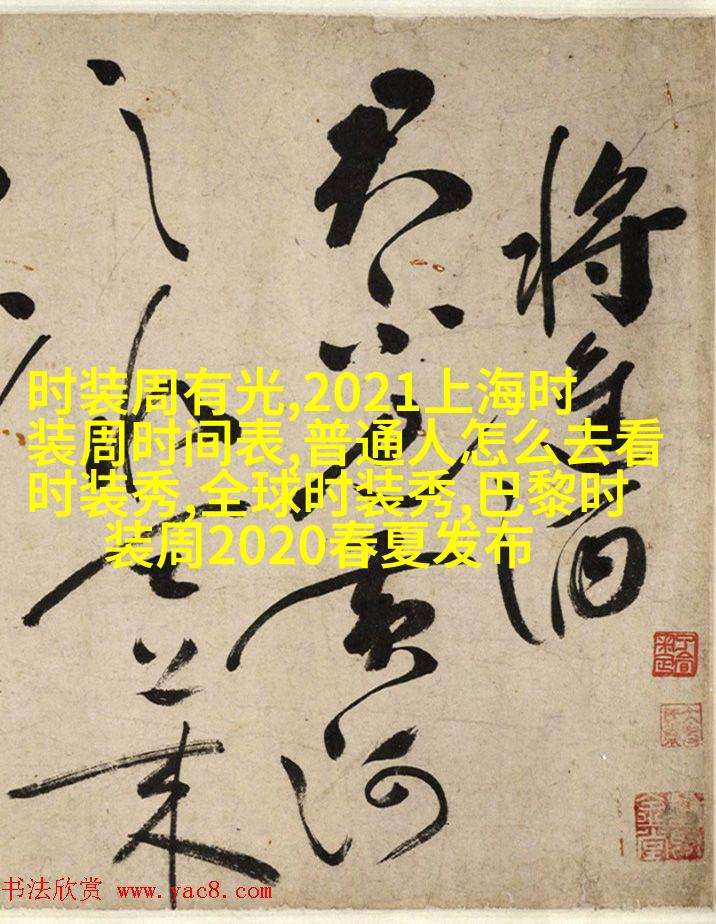 将進酒
君不見黃河
之水天上来
时装周有光,2021上海时
装周时间表,普通人怎么去看
时装秀,全球时装秀,巴黎时
装周2020春夏发布
书法欣赏 www.yac8.com